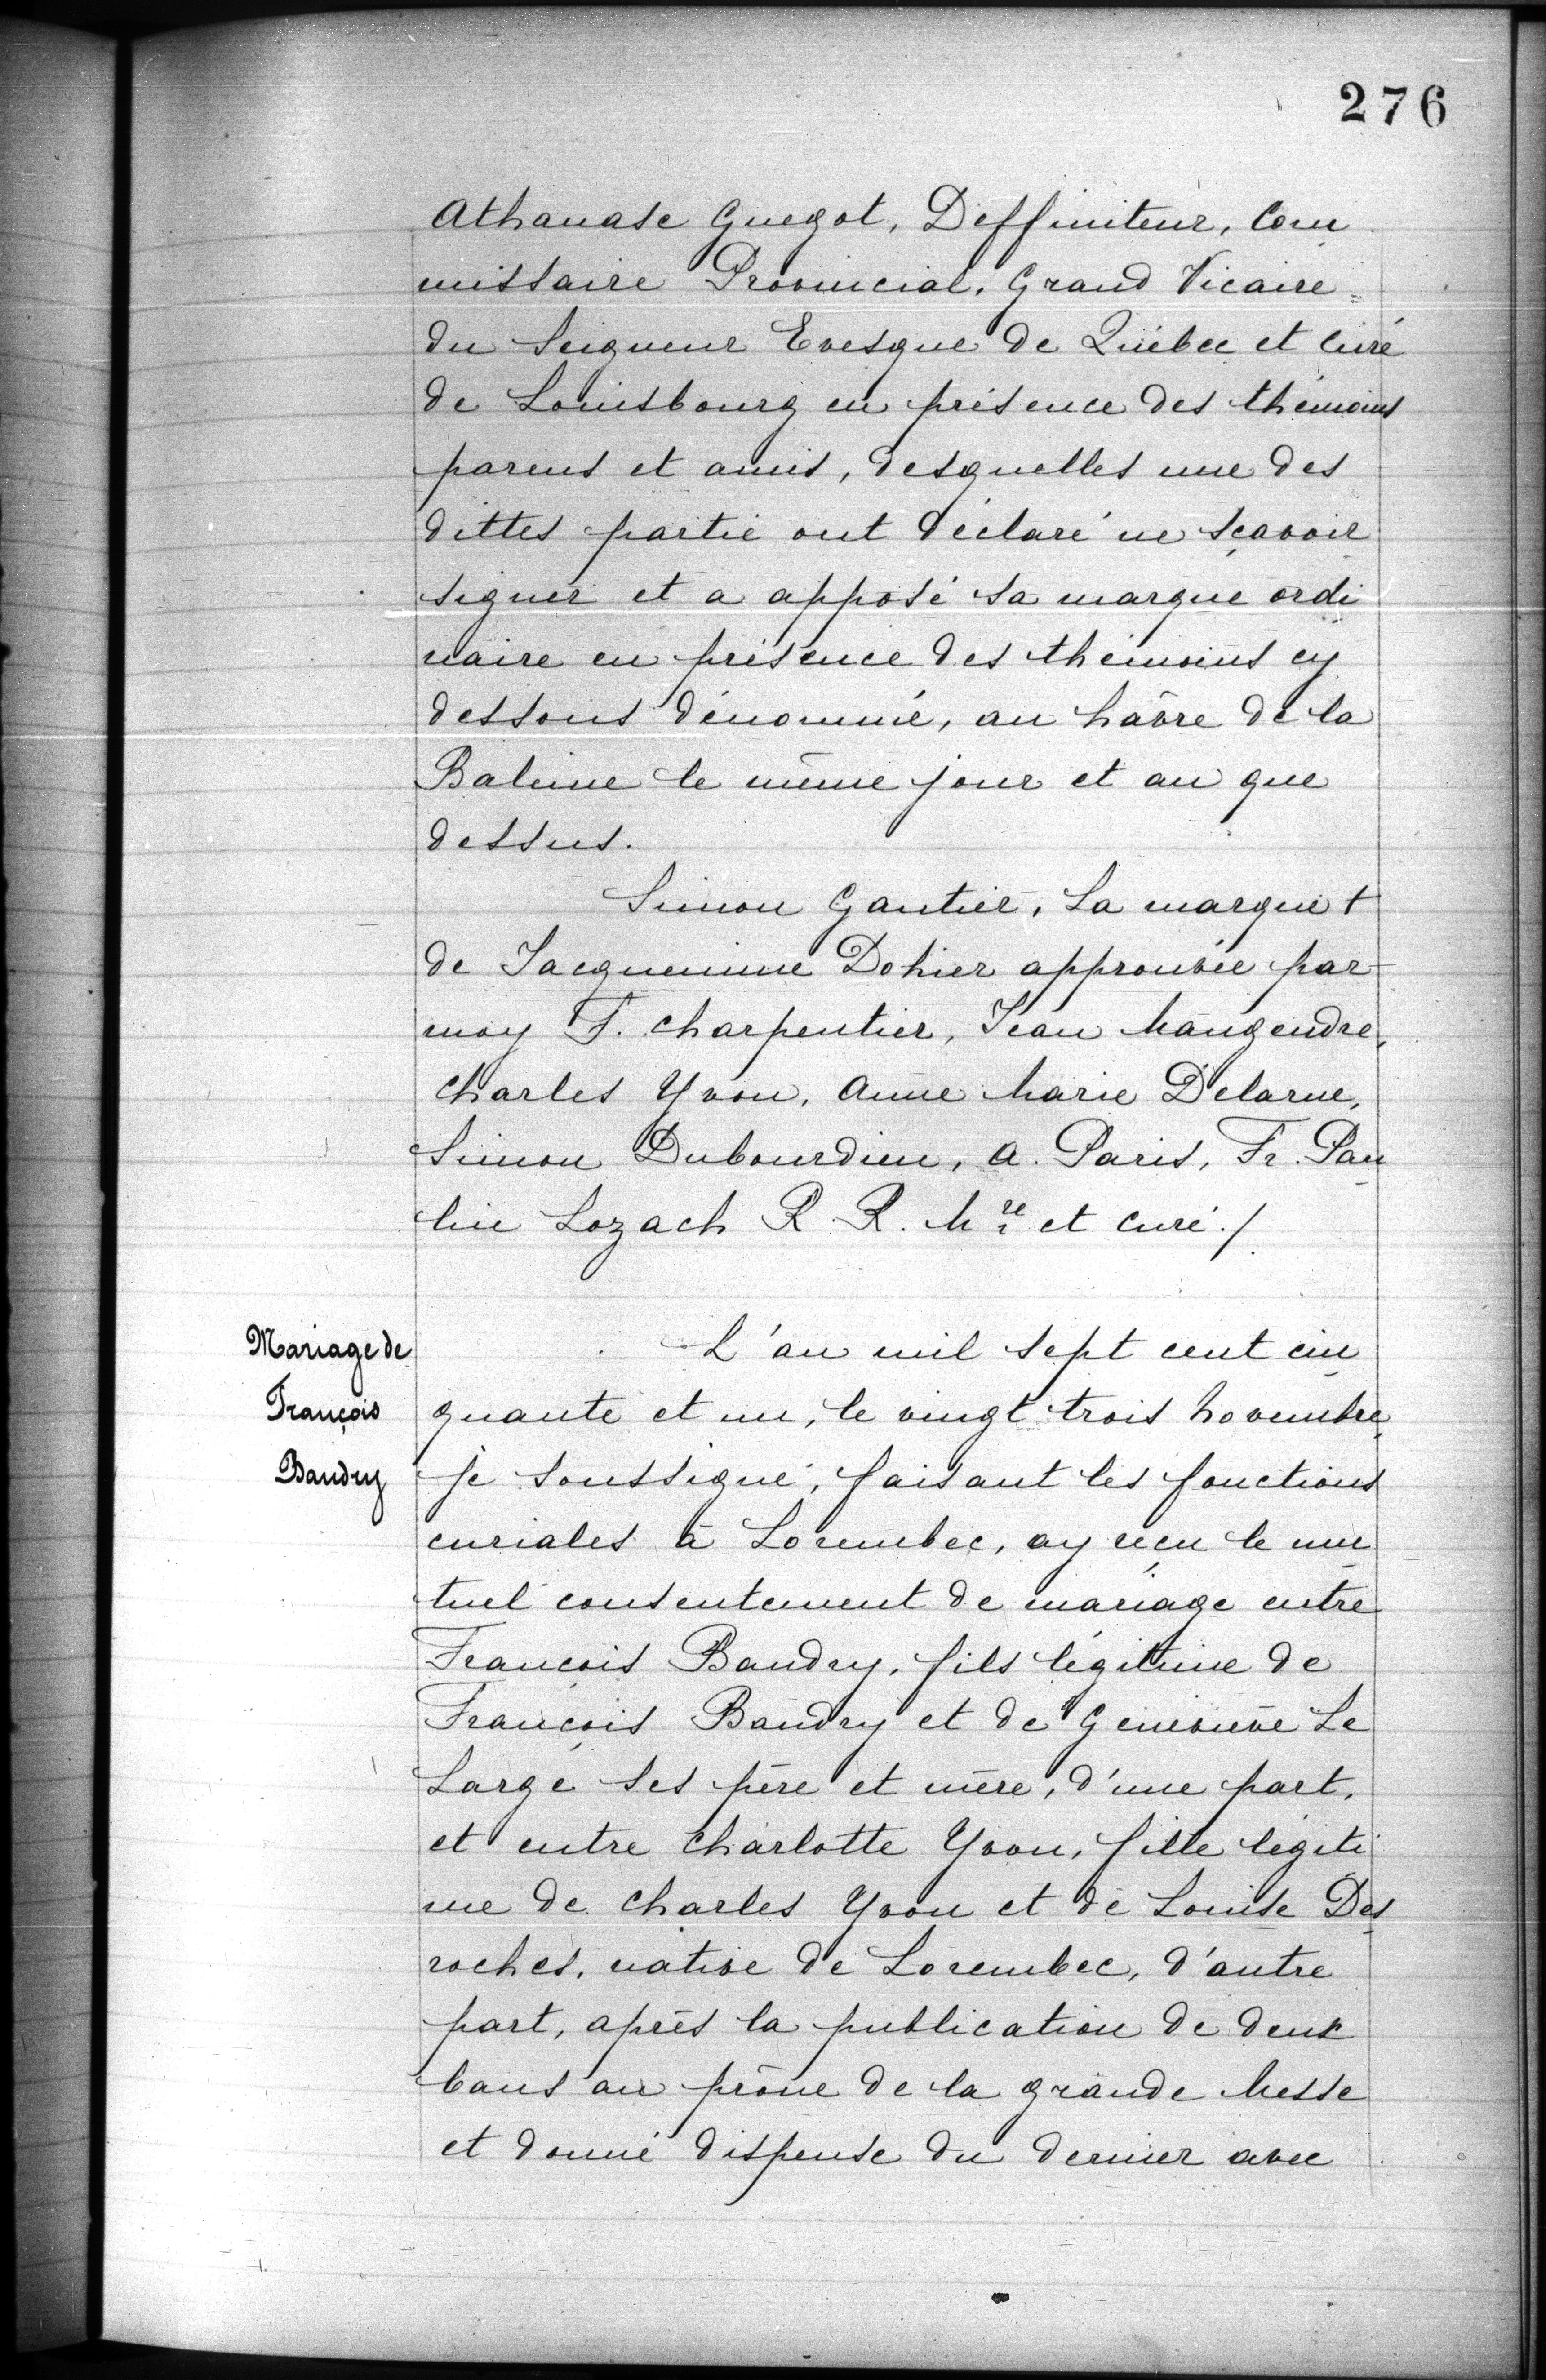 276
Athanase Guegot, Deffiniteur, Com
missaire Provincial, Grand Vicaire
du Seigneur Evesque de Québec et Curé
de Louisbourg en présence des thémoins
parens et amis, desquelles une des
dittes partie ont déclaré ne sçavoir
signer et a apposé sa marque ordi
naire en présence des thémoins cy
dessous dénommé, au hâvre de la
Baleine le même jour et an que
dessus.
Simon Gautier, La marque +
de Jacquemine Dohier approuvée par
moy F. Charpentier, Jean Maugendre,
Charles Yvon, Anne Marie Delarue,
Simon Dubourdieu, A. Paris, Fr. Pau
lin Lozach R. R. Mre et curé./
Mariage de
François
Baudry
L'an mil sept cent cin
quante et un, le vingt trois Novembre,
je soussigné, faisant les fonctions
curiales à Lorembec, ay reçu le mu
tuel consentement de mariage entre
François Baudry, fils légitime de
François Baudry et de Geneviève Le
Large ses père et mère, d'une part,
et entre Charlotte Yvon, fille légiti
me de Charles Yvon et de Louise Des
roches, native de Lorembec, d'autre
part, après la publication de deux
bans au prône de la grande Messe
et donné dispense du dernier avec